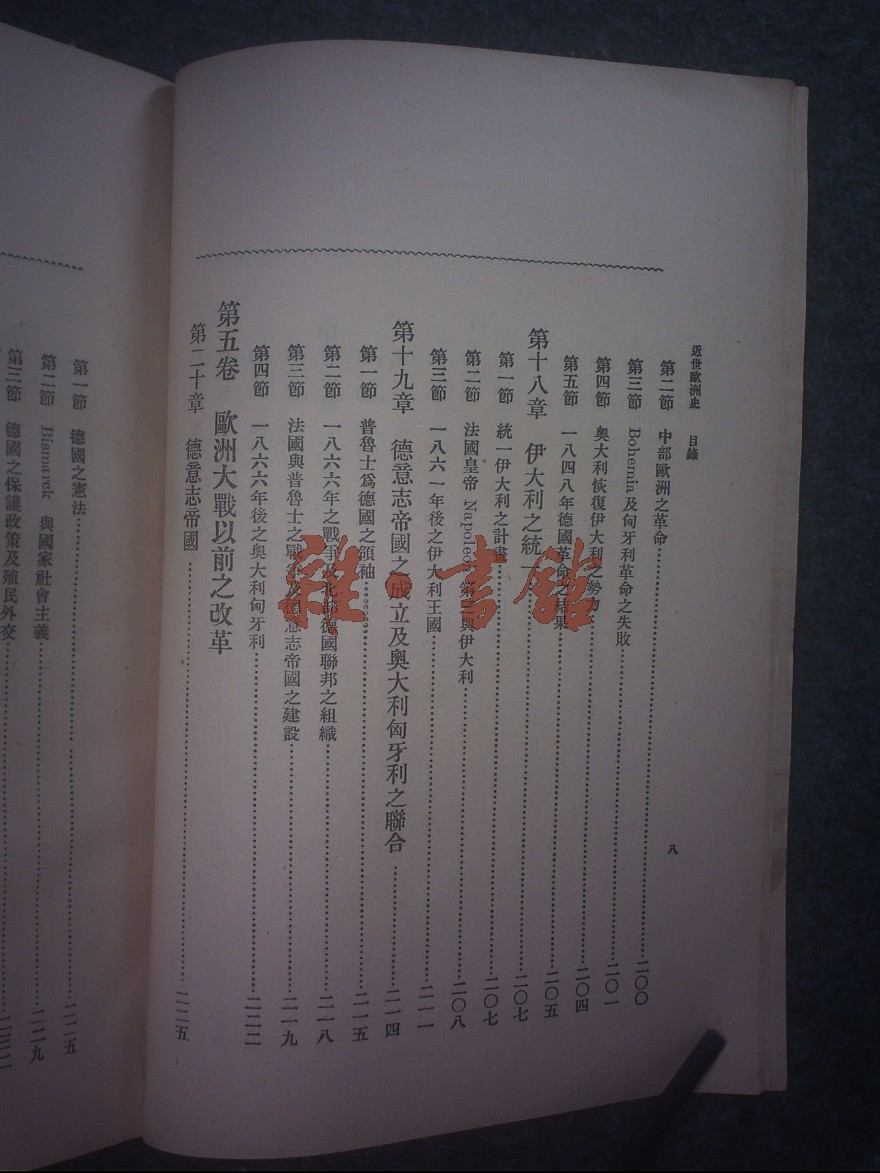 近世歐洲史 目錄 八
第二節 中部歐洲之革命 二〇〇
第三節 Bohemia 及匈牙利革命之失敗 二〇一
第四節 奧大利恢復伊大利之勢力 二〇四
第五節 一八四八年德國革命之結果 二〇五
第十八章 伊大利之統一 二〇七
第一節 統一伊大利之計畫 二〇七
第二節 法國皇帝 Napoleon 第三與伊大利 二〇八
第三節 一八六一年後之伊大利王國 二一一
第十九章 德意志帝國之成立及奧大利匈牙利之聯合 二一四
第一節 普魯士爲德國之領袖 二一五
第二節 一八六六年之戰爭及北部德國聯邦之組織 二一八
第三節 法國與普魯士之戰爭及德意志帝國之建設 二一九
第四節 一八六六年後之奧大利匈牙利 二二二
第五卷 歐洲大戰以前之改革
第二十章 德意志帝國 二二五
第一節 德國之憲法 二二五
第二節 Bismarck 與國家社會主義 二二九
第三節 德國之保護政策及殖民外交
雜·書館